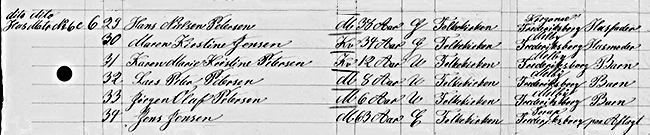 dito dito
Hus Matr. № 6c 6. 29 Hans Nielsen Petersen M 38 Aar G Folkekirken Frederiksborg Husfader
30 Maren Kirstine Jensen Kv 34 Aar G Folkekirken Frederiksborg Husmoder
31 Karen Marie Kristine Petersen Kv 12 Aar U Folkekirken Frederiksborg Barn
32 Lars Peter Petersen M 8 Aar U Folkekirken Frederiksborg Barn
33 Jørgen Oluf Petersen M 6 Aar U Folkekirken Frederiksborg Barn
34 Jens Jensen M 63 Aar Folkekirken Frederiksborg paa Aftægt